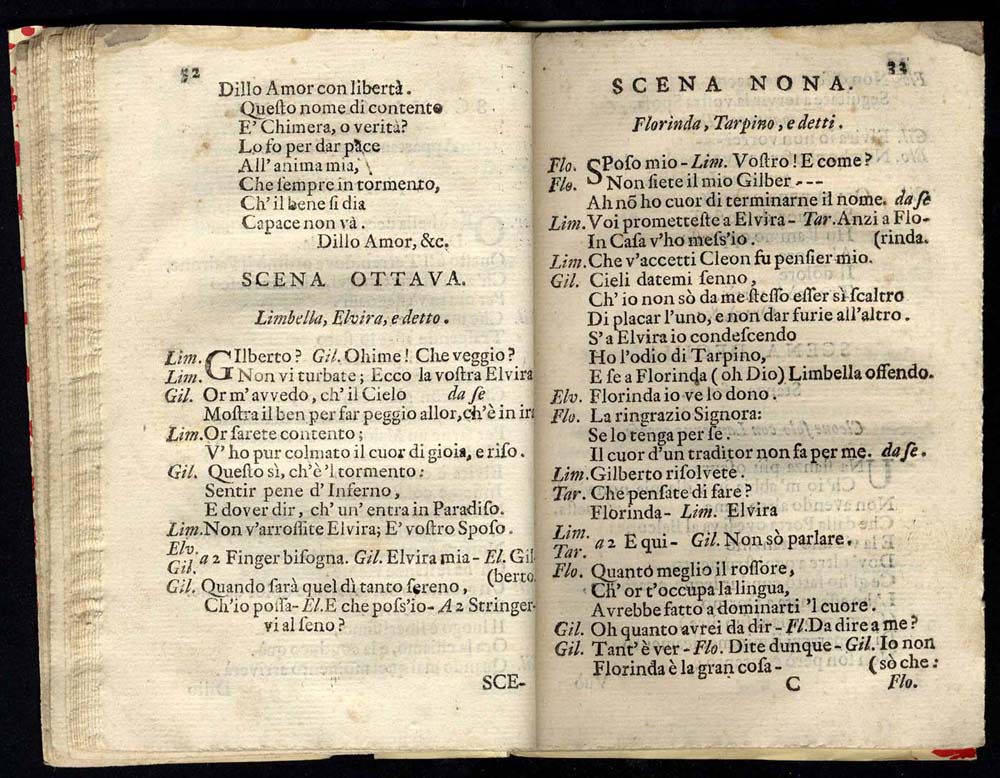 52
Dillo Amor con libertà.
Queſto nome di contento
E' Chimera, o verità?
Lo fo per dar pace
All' anima mia,
Che ſempre in tormento,
Ch' il bene ſi dia
Capace non và.
Dillo Amor, &c.
SCENA OTTAVA.
Limbella, Elvira, e detto.
Lim. GIlberto? Gil. Ohime! Che veggio?
Lim. Non vi turbate; Ecco la voſtra Elvira
Gil. Or m'avvedo, ch' il Cielo da ſe
Moſtra il ben per far peggio allor, ch'è in ira
Lim. Or ſarete contento;
V' ho pur colmato il cuor di gioia, e riſo.
Gil. Queſto sì, ch'è 'l tormento:
Sentir pene d' Inferno,
E dover dir, ch' un' entra in Paradiſo.
Lim. Non v'arroſſite Elvira; E' voſtro Spoſo.
Elv. Gil. a 2 Finger biſogna. Gil. Elvira mia- El. Gil
(berto.
Gil. Quando ſarà quel dì tanto ſereno,
Ch'io poſſa- El. E che poſs'io- A 2 Stringer-
vi al ſeno?
SCE-
33
SCENA NONA.
Florinda, Tarpino, e detti.
Flo. SPoſo mio- Lim. Voſtro! E come?
Flo. Non ſiete il mio Gilber ---
Ah nõ ho cuor di terminarne il nome. da ſe
Lim. Voi prometteſte a Elvira- Tar. Anzi a Flo-
In Caſa v'ho meſs'io. (rinda.
Lim. Che v'accetti Cleon fu penſier mio.
Gil. Cieli datemi ſenno,
Ch' io non sò da me ſteſſo eſſer sì ſcaltro
Di placar l'uno, e non dar furie all'altro.
S'a Elvira io condeſcendo
Ho l'odio di Tarpino,
E ſe a Florinda (oh Dio) Limbella offendo.
Elv. Florinda io ve lo dono.
Flo. La ringrazio Signora:
Se lo tenga per ſe.
Il cuor d'un traditor non fa per me. da ſe.
Lim. Gilberto riſolvete.
Tar. Che penſate di fare?
Florinda- Lim. Elvira
Lim. Tar. a 2 E qui- Gil. Non sò parlare.
Flo. Quanto meglio il roſſore,
Ch' or t'occupa la lingua,
Avrebbe fatto a dominarti 'l cuore.
Gil. Oh quanto avrei da dir- Fl. Da dire a me?
Gil. Tant' è ver- Flo. Dite dunque- Gil. Io non
Florinda è la gran coſa- (sò che:
C Flo.